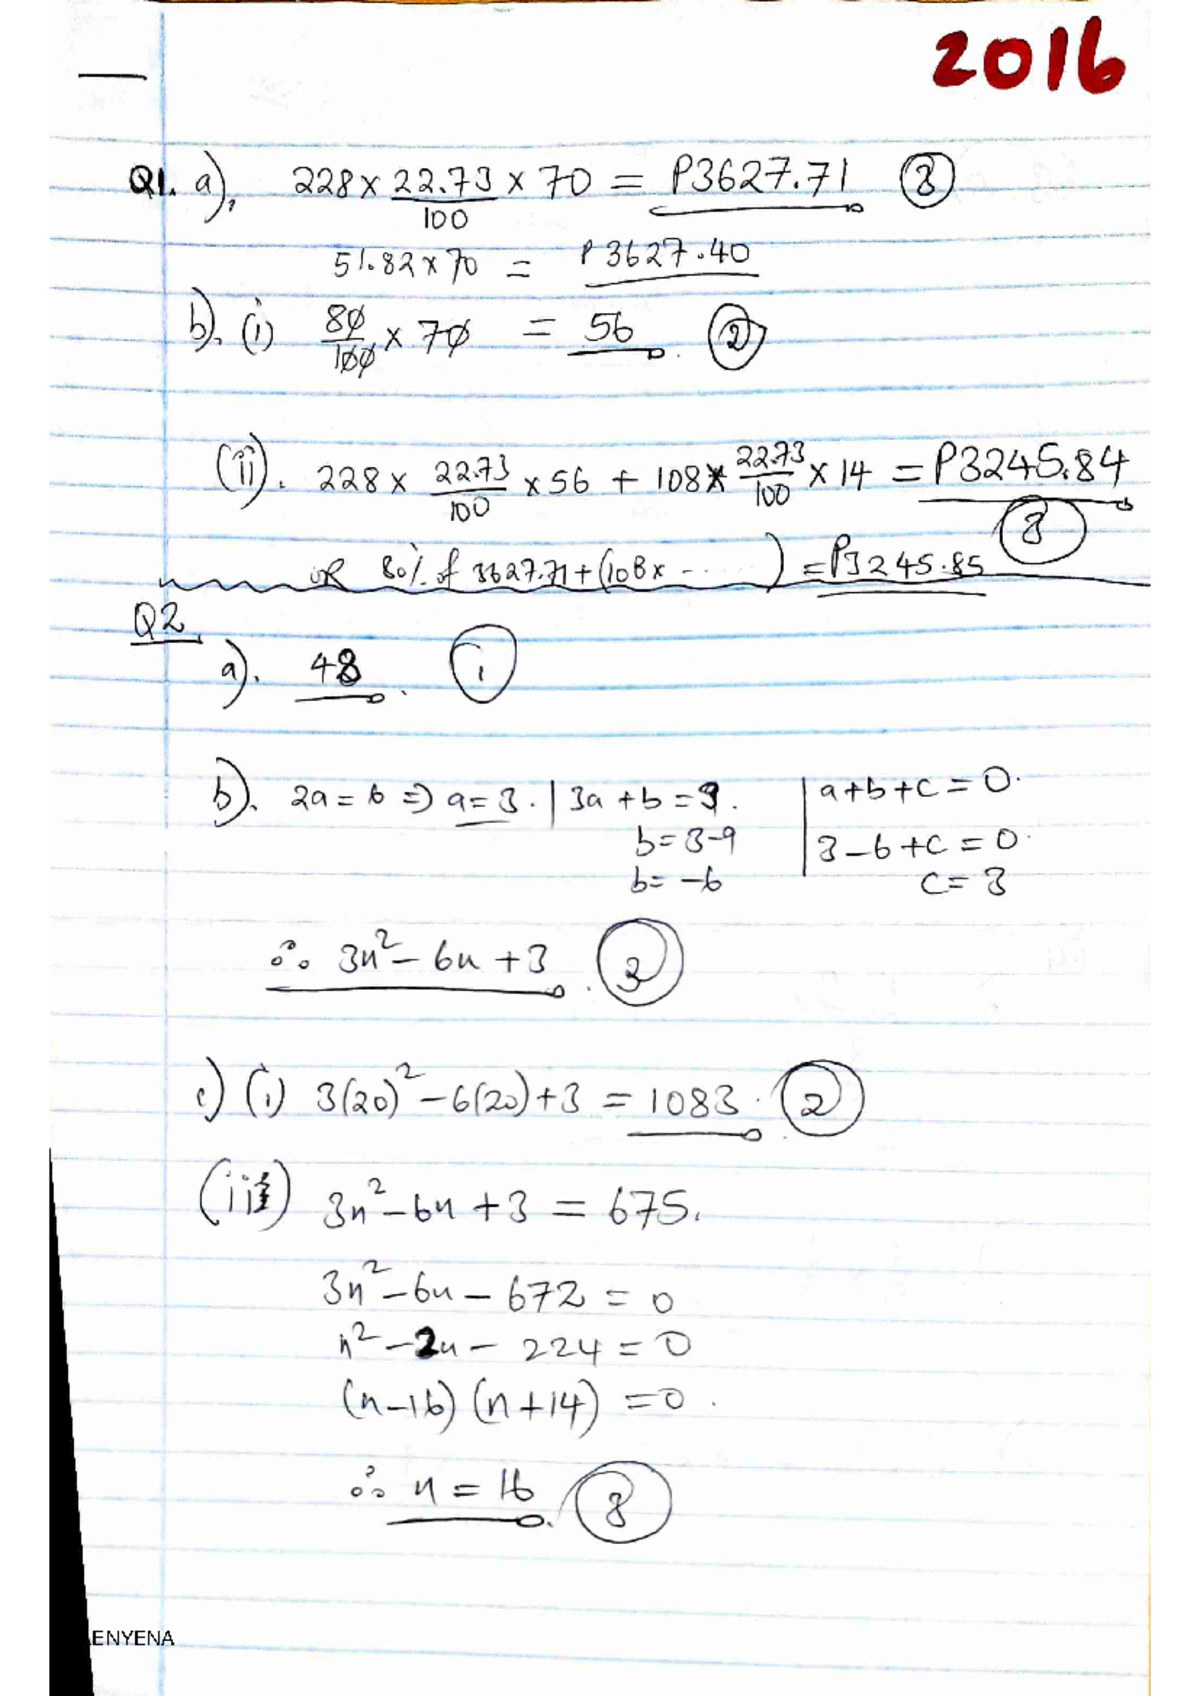 2016
Q1. a), 228 x 22.73/100 x 70 = P3627.71 (3)
51.82 x 70 = P3627.40
b). (i) 80/100 x 70 = 56. (2)
(ii). 228 x 22.73/100 x 56 + 108 x 22.73/100 x 14 = P3245.84
(3)
OR 80% of 3627.71 + (108 x ......) = P3245.85
Q2
a). 48. (1)
b). 2a = 6 => a = 3. | 3a + b = 3. | a+b+c = 0.
b = 3-9 | 3-6+c = 0.
b = -6 c = 3
∴ 3n² - 6n + 3. (3)
c) (i) 3(20)² - 6(20) + 3 = 1083. (2)
(ii) 3n² - 6n + 3 = 675.
3n² - 6n - 672 = 0
n² - 2n - 224 = 0
(n-16) (n+14) = 0.
∴ n = 16. (3)
ENYENA